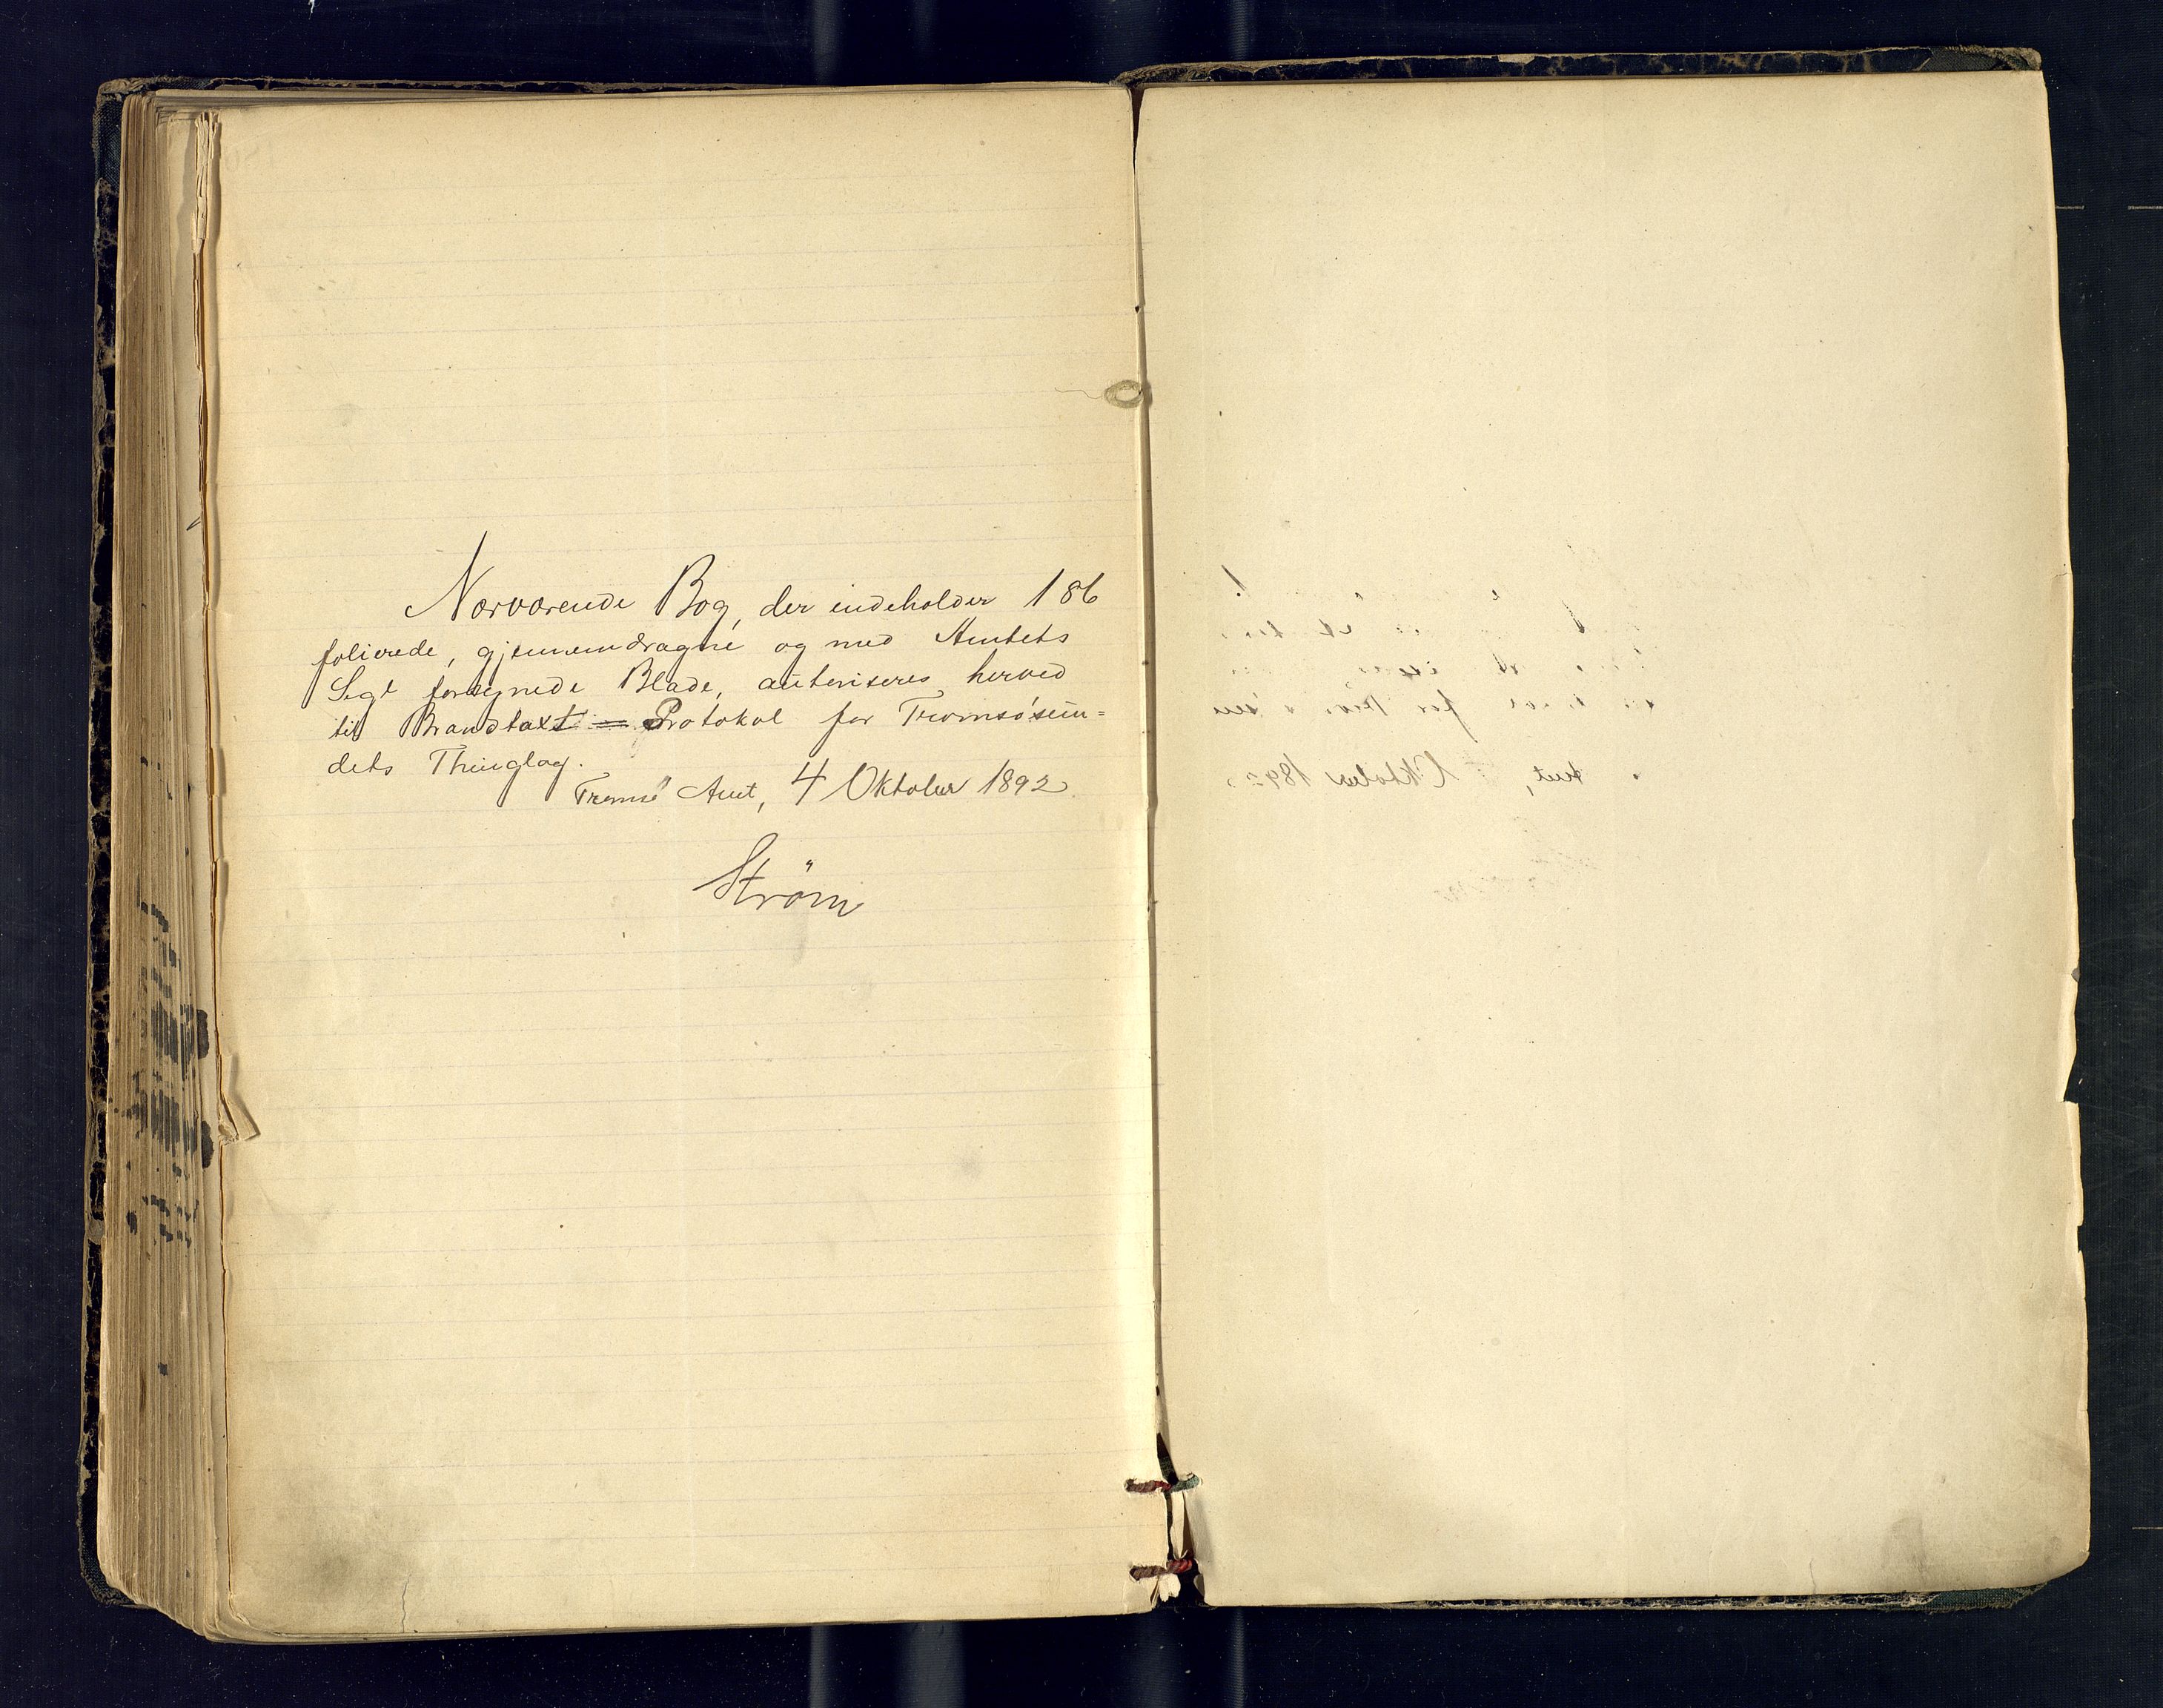 Nærværende Bog, der indeholder 186
folierede, gjennemdragne og med Amtets
Segl forsynede Blade, autoriseres herved
til Brandtaxt = Protokol for Tromsøsun=
dets Thinglag.
Tromsø Amt, 4 Oktober 1892
Strøm